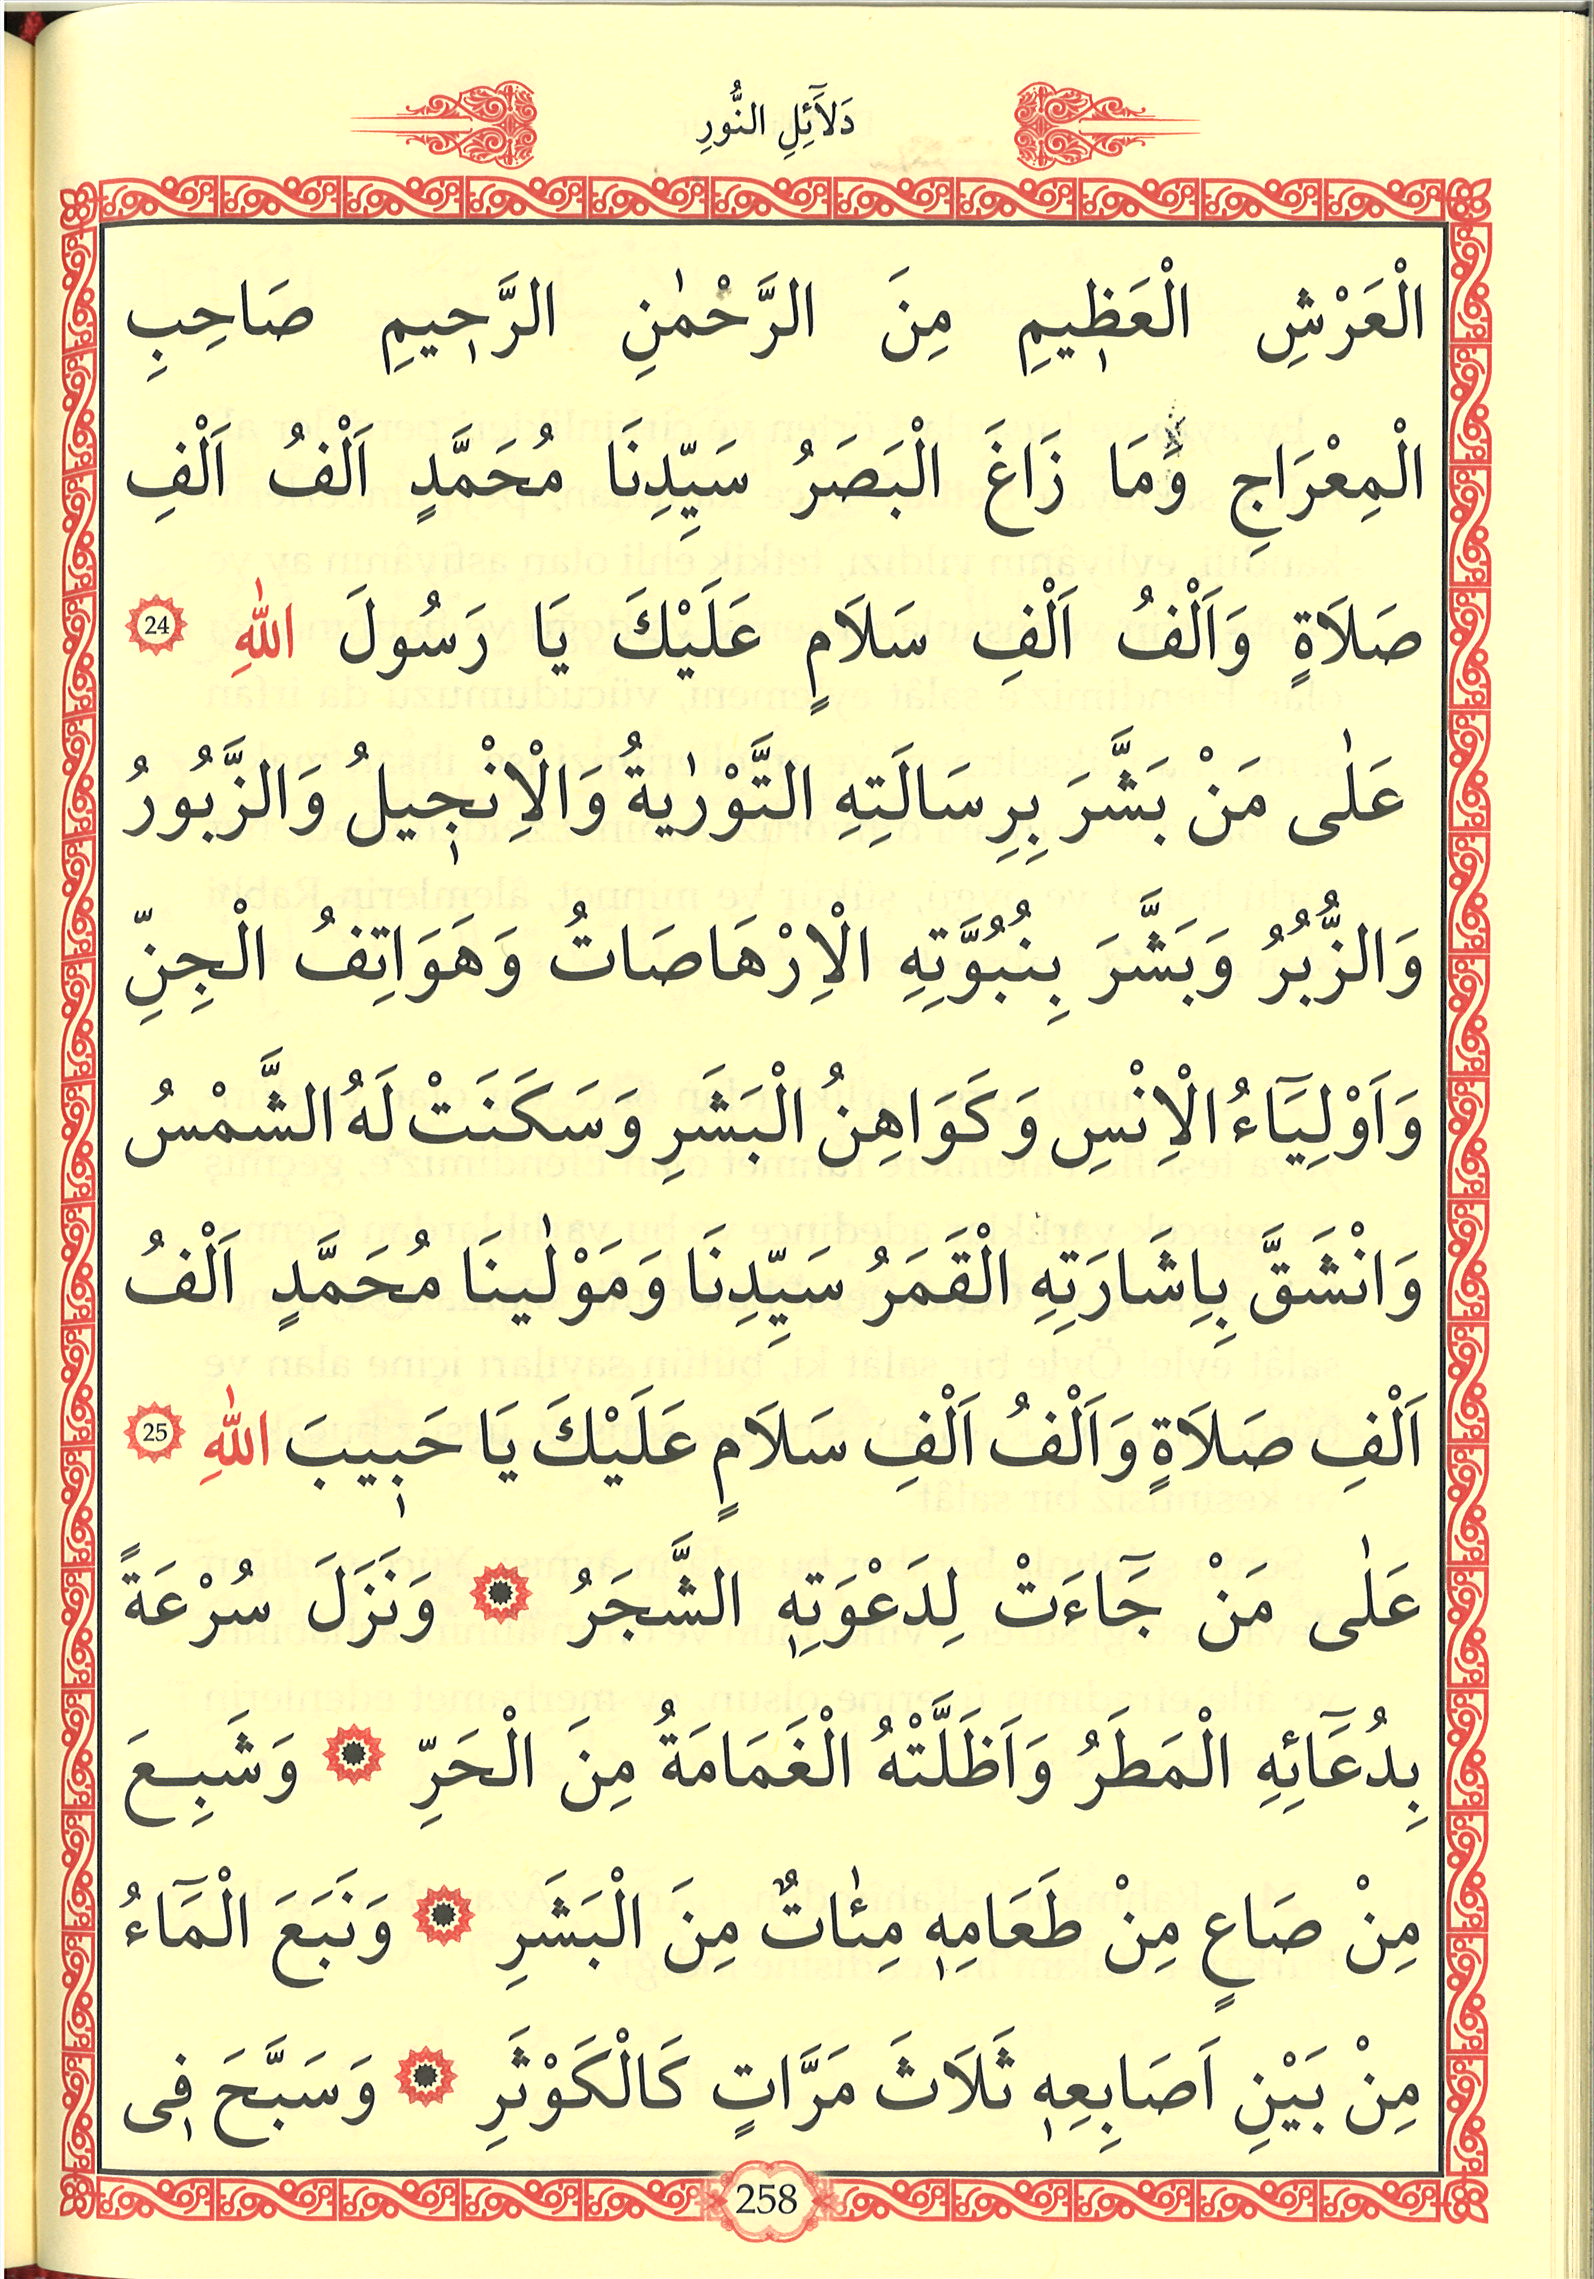 دَلَٓائِلِ النُّورِ
الْعَرْشِ الْعَظٖيمِ مِنَ الرَّحْمٰنِ الرَّحٖيمِ صَاحِبِ
الْمِعْرَاجِ وَمَا زَاغَ الْبَصَرُ سَيِّدِنَا مُحَمَّدٍ اَلْفُ اَلْفِ
صَلَاةٍ وَاَلْفُ اَلْفِ سَلَامٍ عَلَيْكَ يَا رَسُولَ اللّٰهِ 24
عَلٰى مَنْ بَشَّرَ بِرِسَالَتِهِ التَّوْرٰيةُ وَالْاِنْجٖيلُ وَالزَّبُورُ
وَالزُّبُرُ وَبَشَّرَ بِنُبُوَّتِهِ الْاِرْهَاصَاتُ وَهَوَاتِفُ الْجِنِّ
وَاَوْلِيَٓاءُ الْاِنْسِ وَكَوَاهِنُ الْبَشَرِ وَسَكَنَتْ لَهُ الشَّمْسُ
وَانْشَقَّ بِاِشَارَتِهِ الْقَمَرُ سَيِّدِنَا وَمَوْلٰينَا مُحَمَّدٍ اَلْفُ
اَلْفِ صَلَاةٍ وَاَلْفُ اَلْفِ سَلَامٍ عَلَيْكَ يَا حَبٖيبَ اللّٰهِ 25
عَلٰى مَنْ جَٓاءَتْ لِدَعْوَتِهٖ الشَّجَرُ ۞ وَنَزَلَ سُرْعَةً
بِدُعَٓائِهِ الْمَطَرُ وَاَظَلَّتْهُ الْغَمَامَةُ مِنَ الْحَرِّ ۞ وَشَبِعَ
مِنْ صَاعٍ مِنْ طَعَامِهٖ مِئٰاتٌ مِنَ الْبَشَرِ ۞ وَنَبَعَ الْمَٓاءُ
مِنْ بَيْنِ اَصَابِعِهٖ ثَلَاثَ مَرَّاتٍ كَالْكَوْثَرِ ۞ وَسَبَّحَ فٖى
258